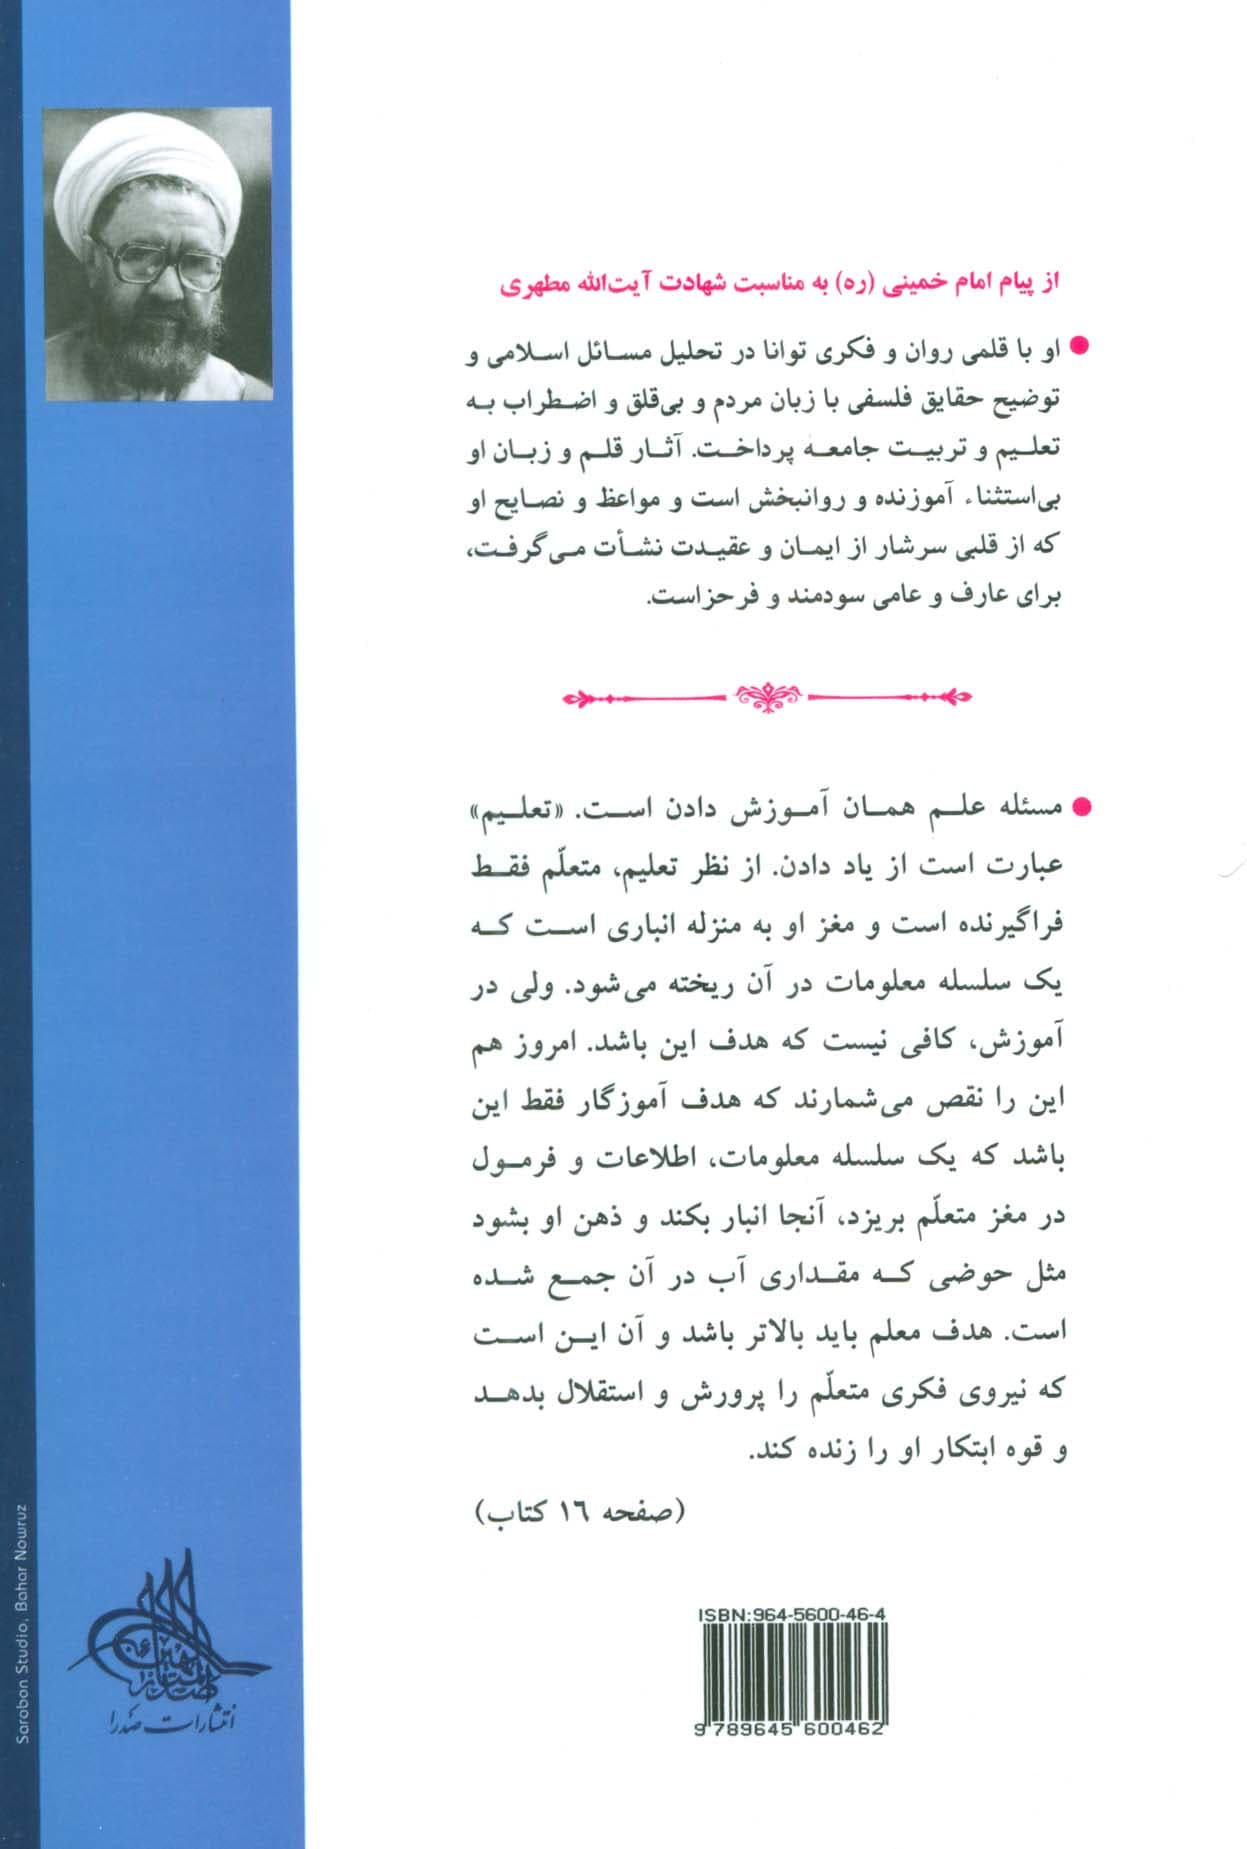 از پیام امام خمینی (ره) به مناسبت شهادت آیت‌الله مطهری
● او با قلمی روان و فکری توانا در تحلیل مسائل اسلامی و
توضیح حقایق فلسفی با زبان مردم و بی‌قلق و اضطراب به
تعلیم و تربیت جامعه پرداخت. آثار قلم و زبان او
بی‌استثناء آموزنده و روانبخش است و مواعظ و نصایح او
که از قلبی سرشار از ایمان و عقیدت نشأت می‌گرفت،
برای عارف و عامی سودمند و فرحزاست.
● مسئله علم همان آموزش دادن است. «تعلیم»
عبارت است از یاد دادن. از نظر تعلیم، متعلّم فقط
فراگیرنده است و مغز او به منزله انباری است که
یک سلسله معلومات در آن ریخته می‌شود. ولی در
آموزش، کافی نیست که هدف این باشد. امروز هم
این را نقص می‌شمارند که هدف آموزگار فقط این
باشد که یک سلسله معلومات، اطلاعات و فرمول
در مغز متعلّم بریزد، آنجا انبار بکند و ذهن او بشود
مثل حوضی که مقداری آب در آن جمع شده
است. هدف معلم باید بالاتر باشد و آن این است
که نیروی فکری متعلّم را پرورش و استقلال بدهد
و قوه ابتکار او را زنده کند.
(صفحه ۱۶ کتاب)
ISBN:964-5600-46-4
9 789645 600462
انتشارات صدرا
Sarabon Studio, Bahar Nowruz